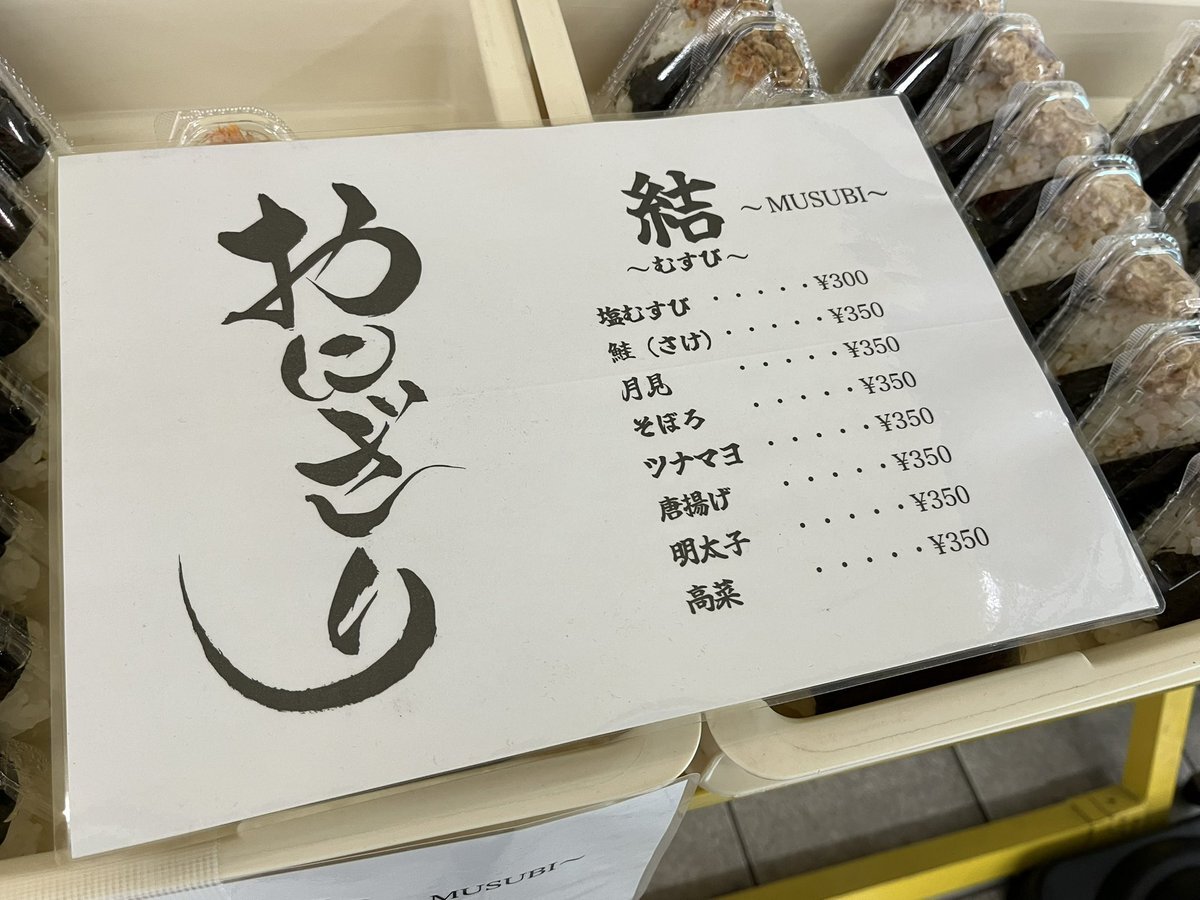 おにぎり
結 ～MUSUBI～
～むすび～
塩むすび ・・・・・¥300
鮭（さけ）・・・・・¥350
月見 ・・・・・¥350
そぼろ ・・・・・¥350
ツナマヨ ・・・・・¥350
唐揚げ ・・・・・¥350
明太子 ・・・・・¥350
高菜 ・・・・・¥350
MUSUBI～